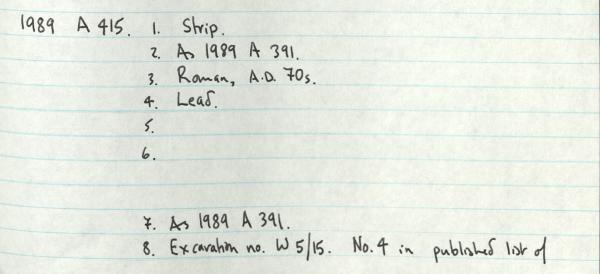 1989 A 415. 1. Strip.
2. As 1989 A 391.
3. Roman, A.D. 70s.
4. Lead.
5.
6.
7. As 1989 A 391.
8. Excavation no. W 5/15. No. 4 in published list of